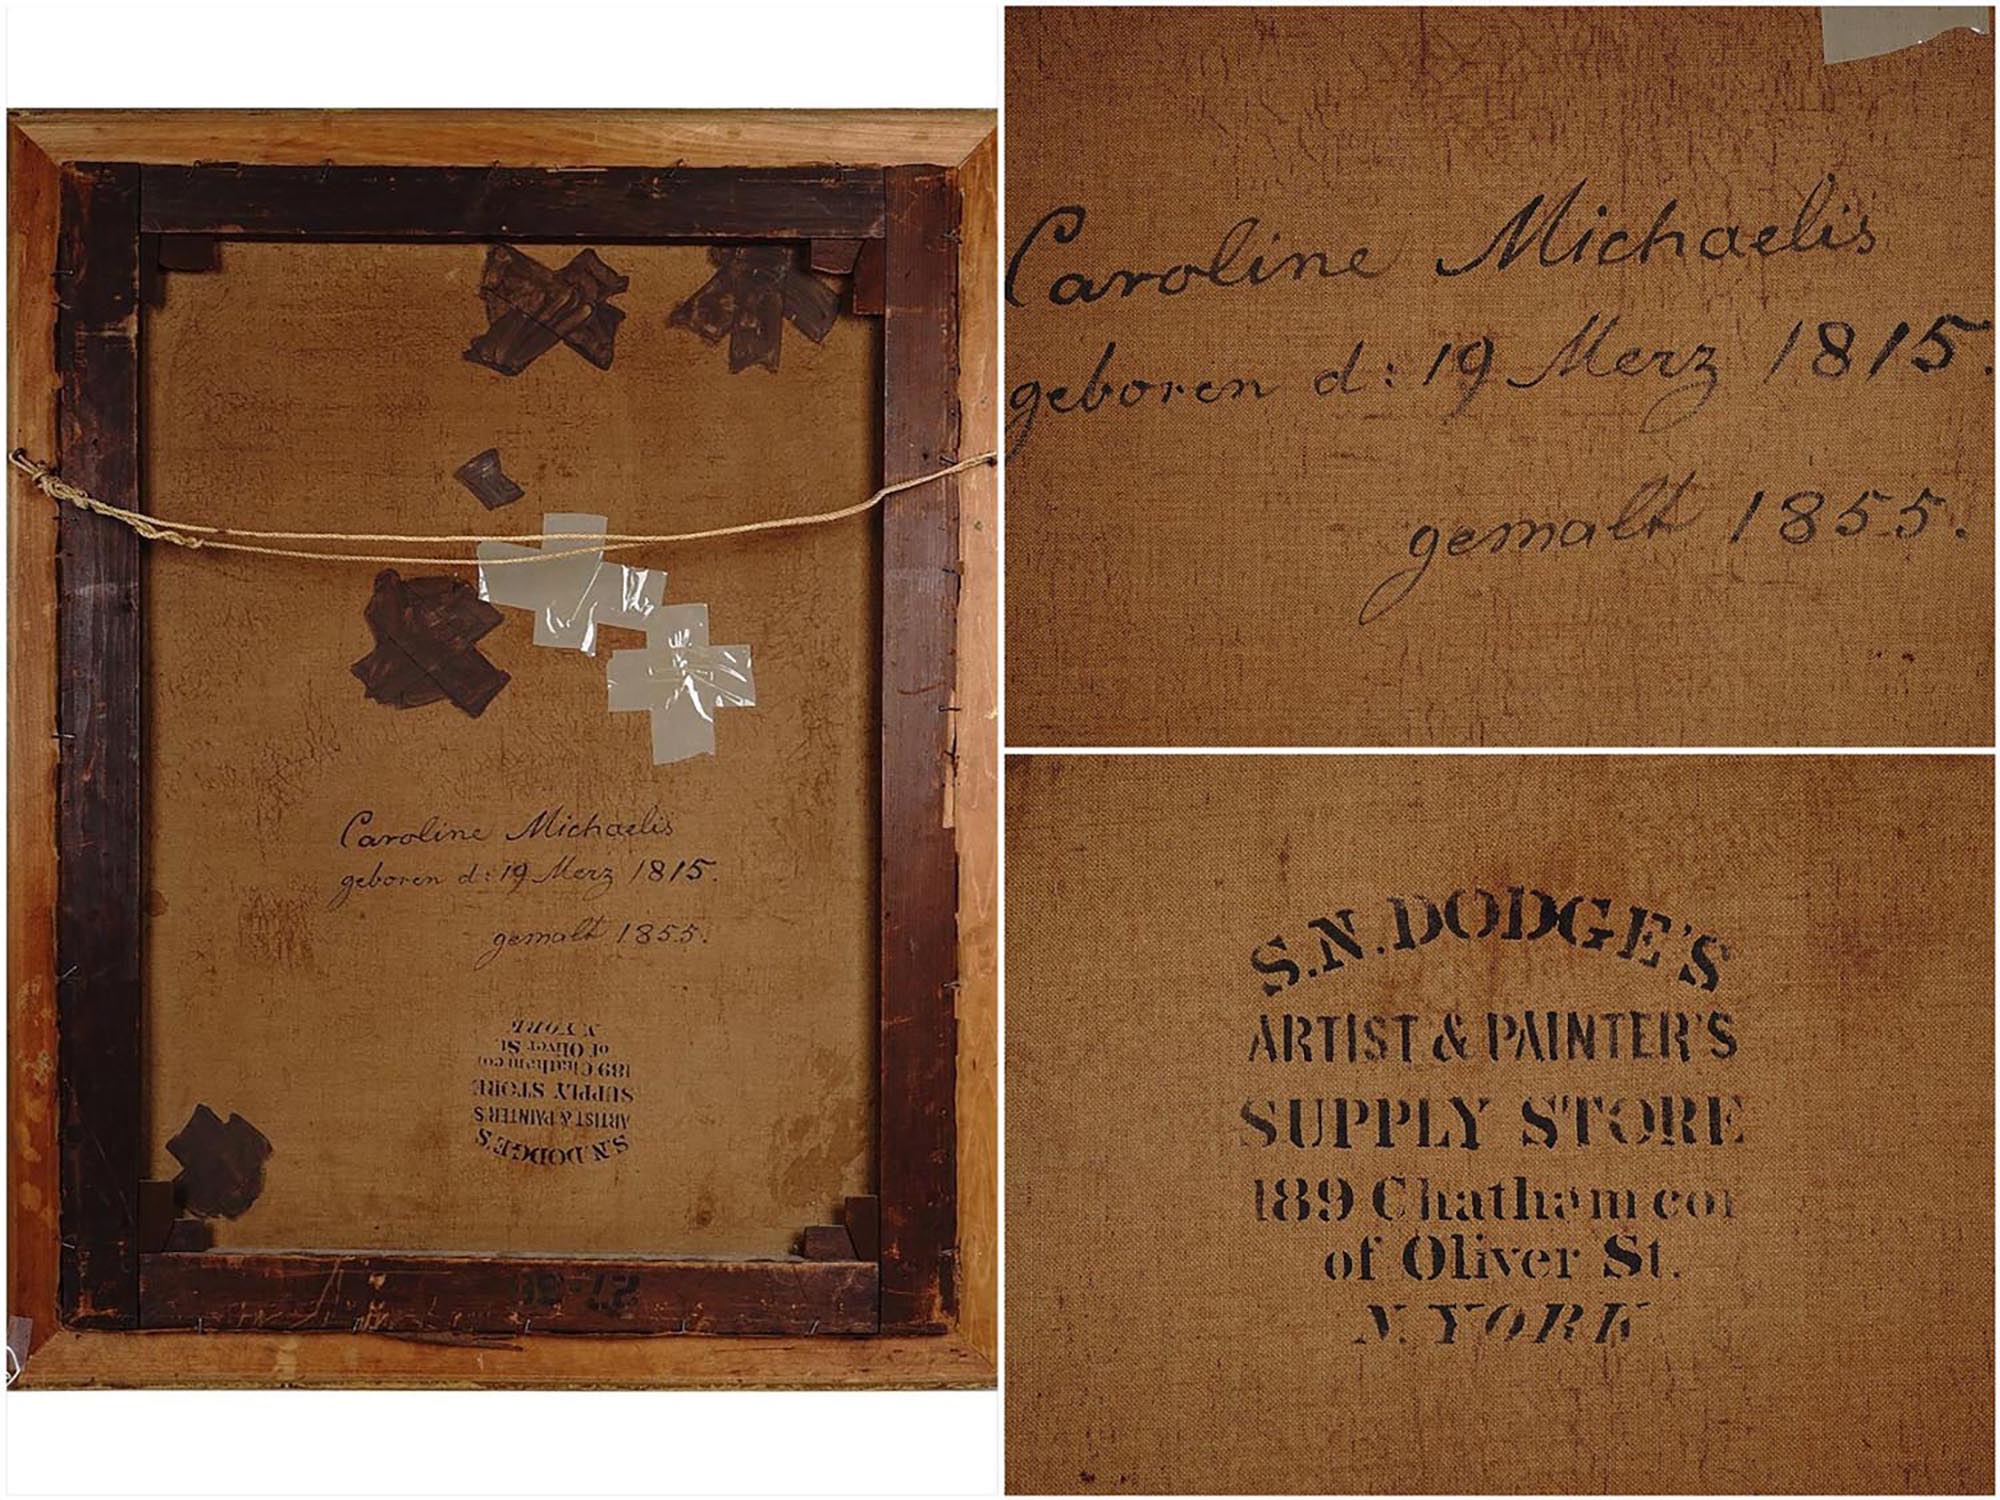 Caroline Michaelis
geboren d: 19 Merz 1815.
gemalt 1855.
S.N. DODGE'S
ARTIST & PAINTER'S
SUPPLY STORE
189 Chatham cor
of Oliver St.
N. YORK
Caroline Michaelis
geboren d: 19 Merz 1815.
gemalt 1855.
S.N. DODGE'S
ARTIST & PAINTER'S
SUPPLY STORE
189 Chatham cor
of Oliver St.
N. YORK